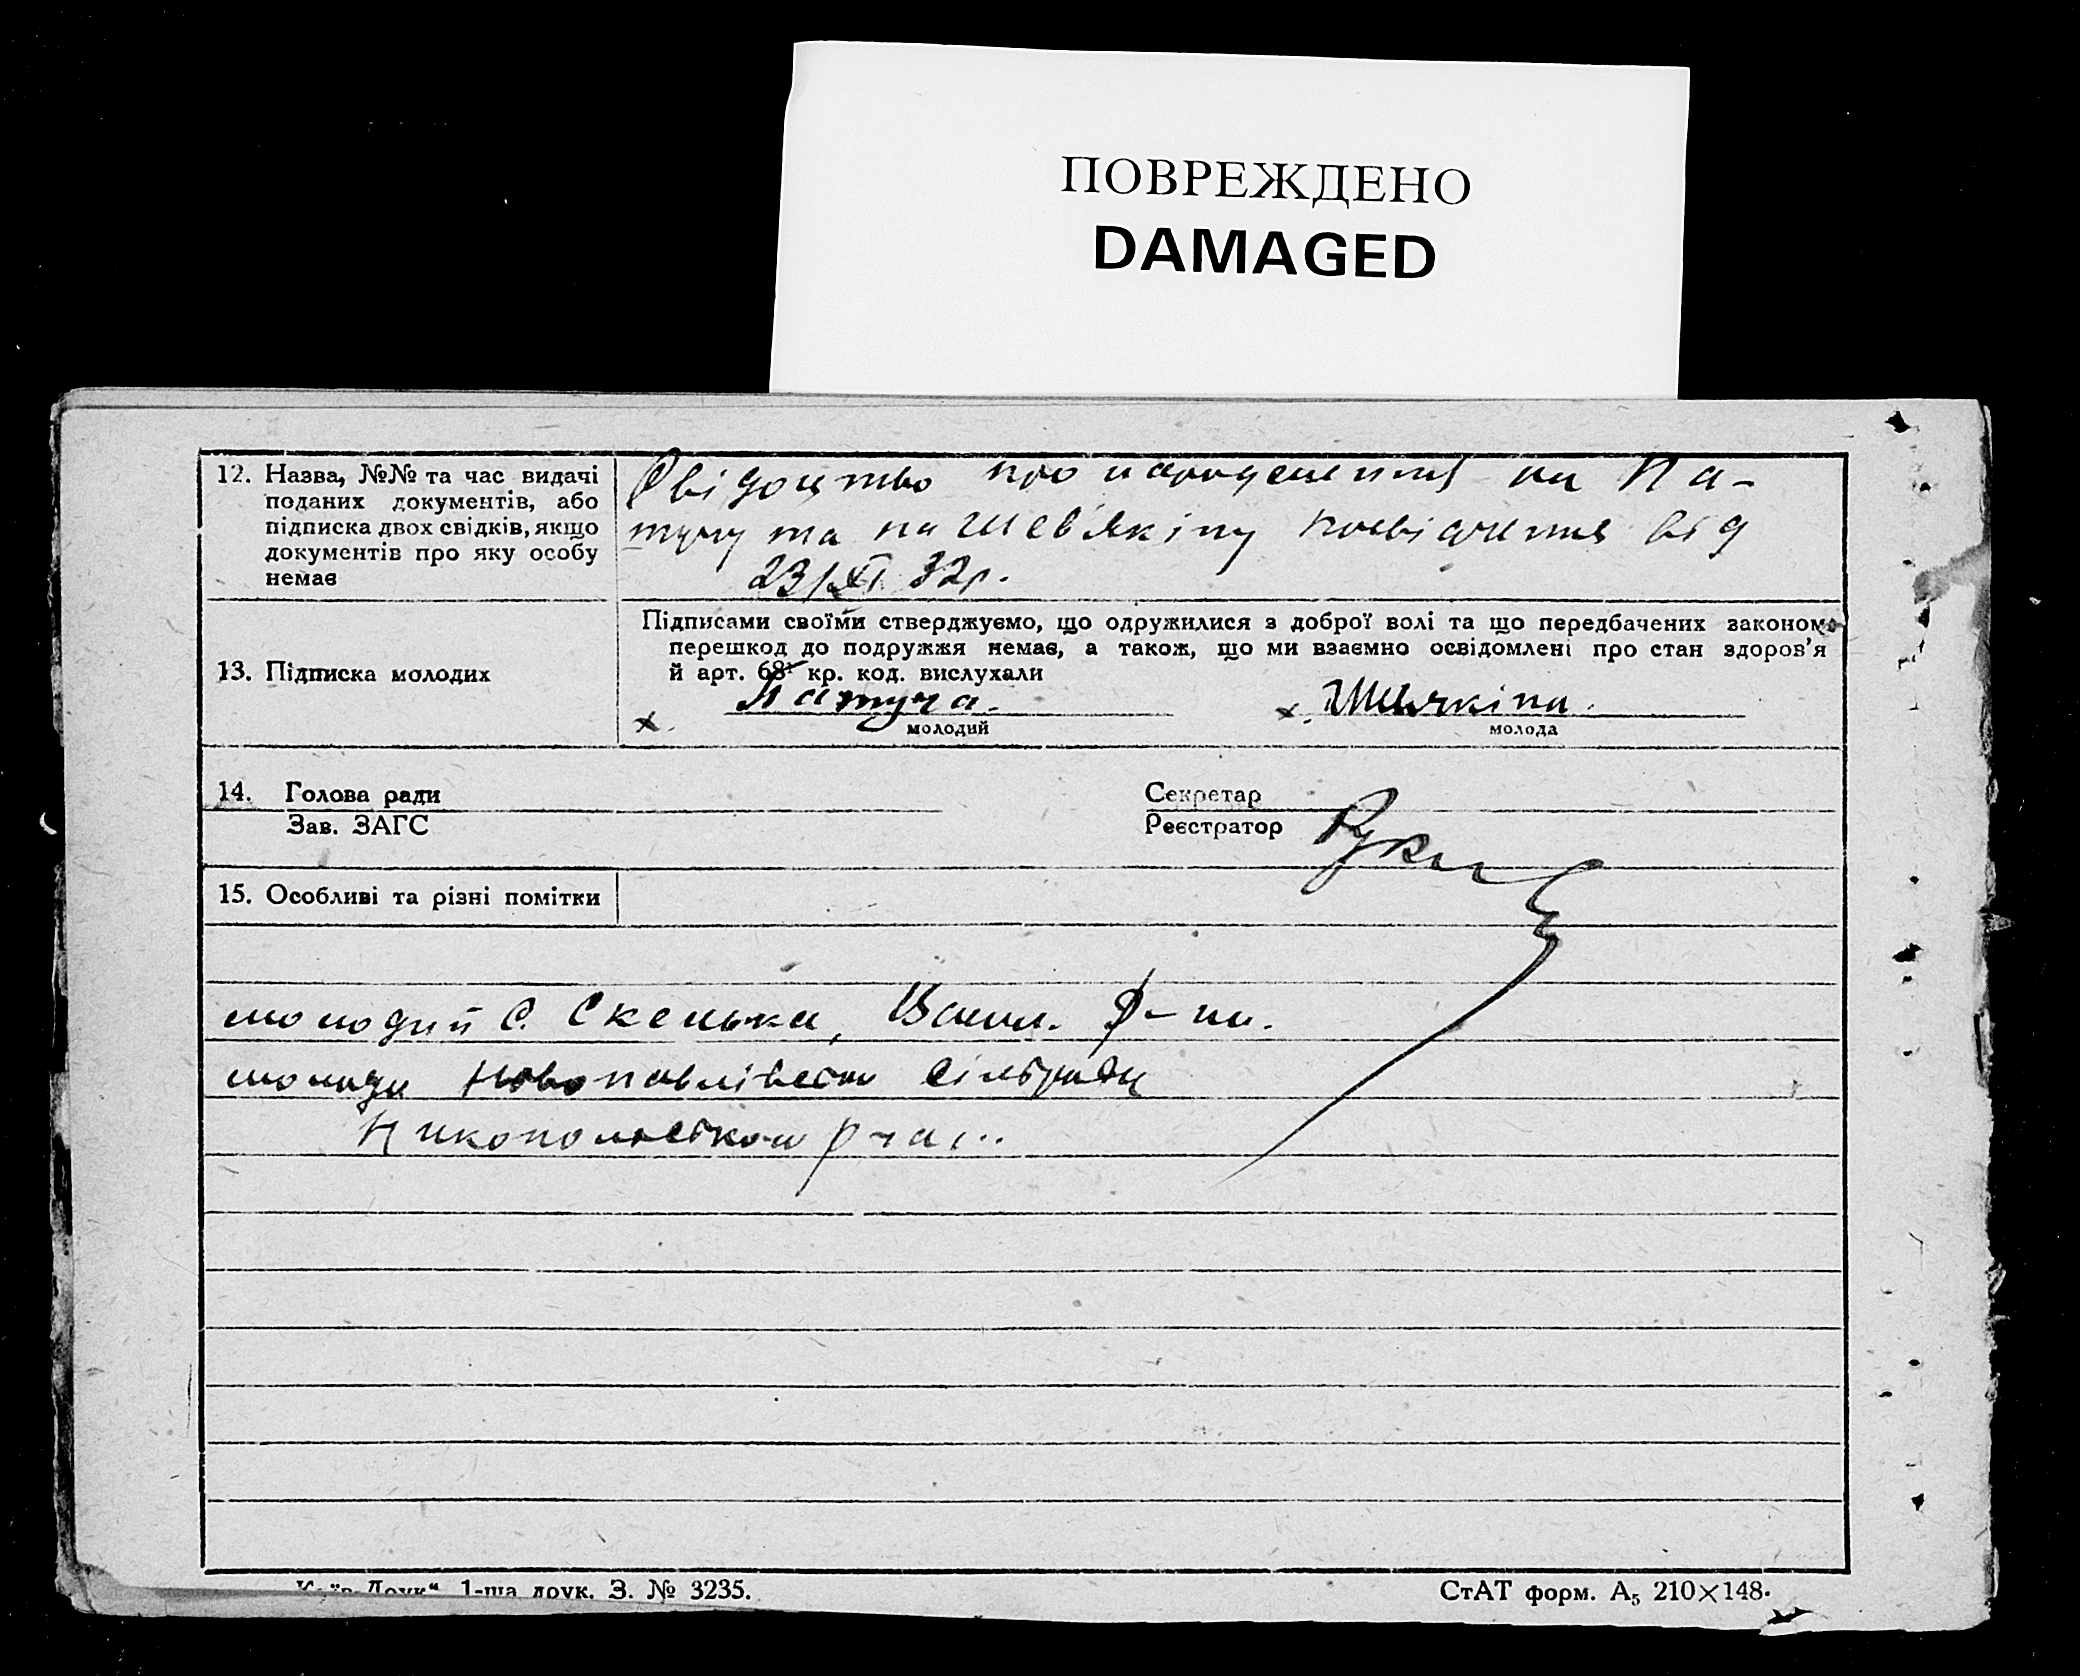 ПОВРЕЖДЕНО
DAMAGED
12. Назва, №№ та час видачі
поданих документів, або
підписка двох свідків, якщо
документів про яку особу
немає
Свідоцтво про народження на Па-
туту та на Шев'якіну посвідчення від
23/XI 32р.
13. Підписка молодих
Підписами своїми стверджуємо, що одружилися з доброї волі та що передбачених законом
перешкод до подружжя немає, а також, що ми взаємно освідомлені про стан здоров'я
й арт. 68¹ кр. код. вислухали
х. молодий
х. молода
14. Голова ради
Секретар
Зав. ЗАГС
Реєстратор
15. Особливі та різні помітки
молодий С. Скелька, Васил. р-на.
молода Новопавлівської сільради
Никопольськой р-на
Київ-Друк“ 1-ша друк. З. № 3235.
СтАТ форм. А₅ 210×148.